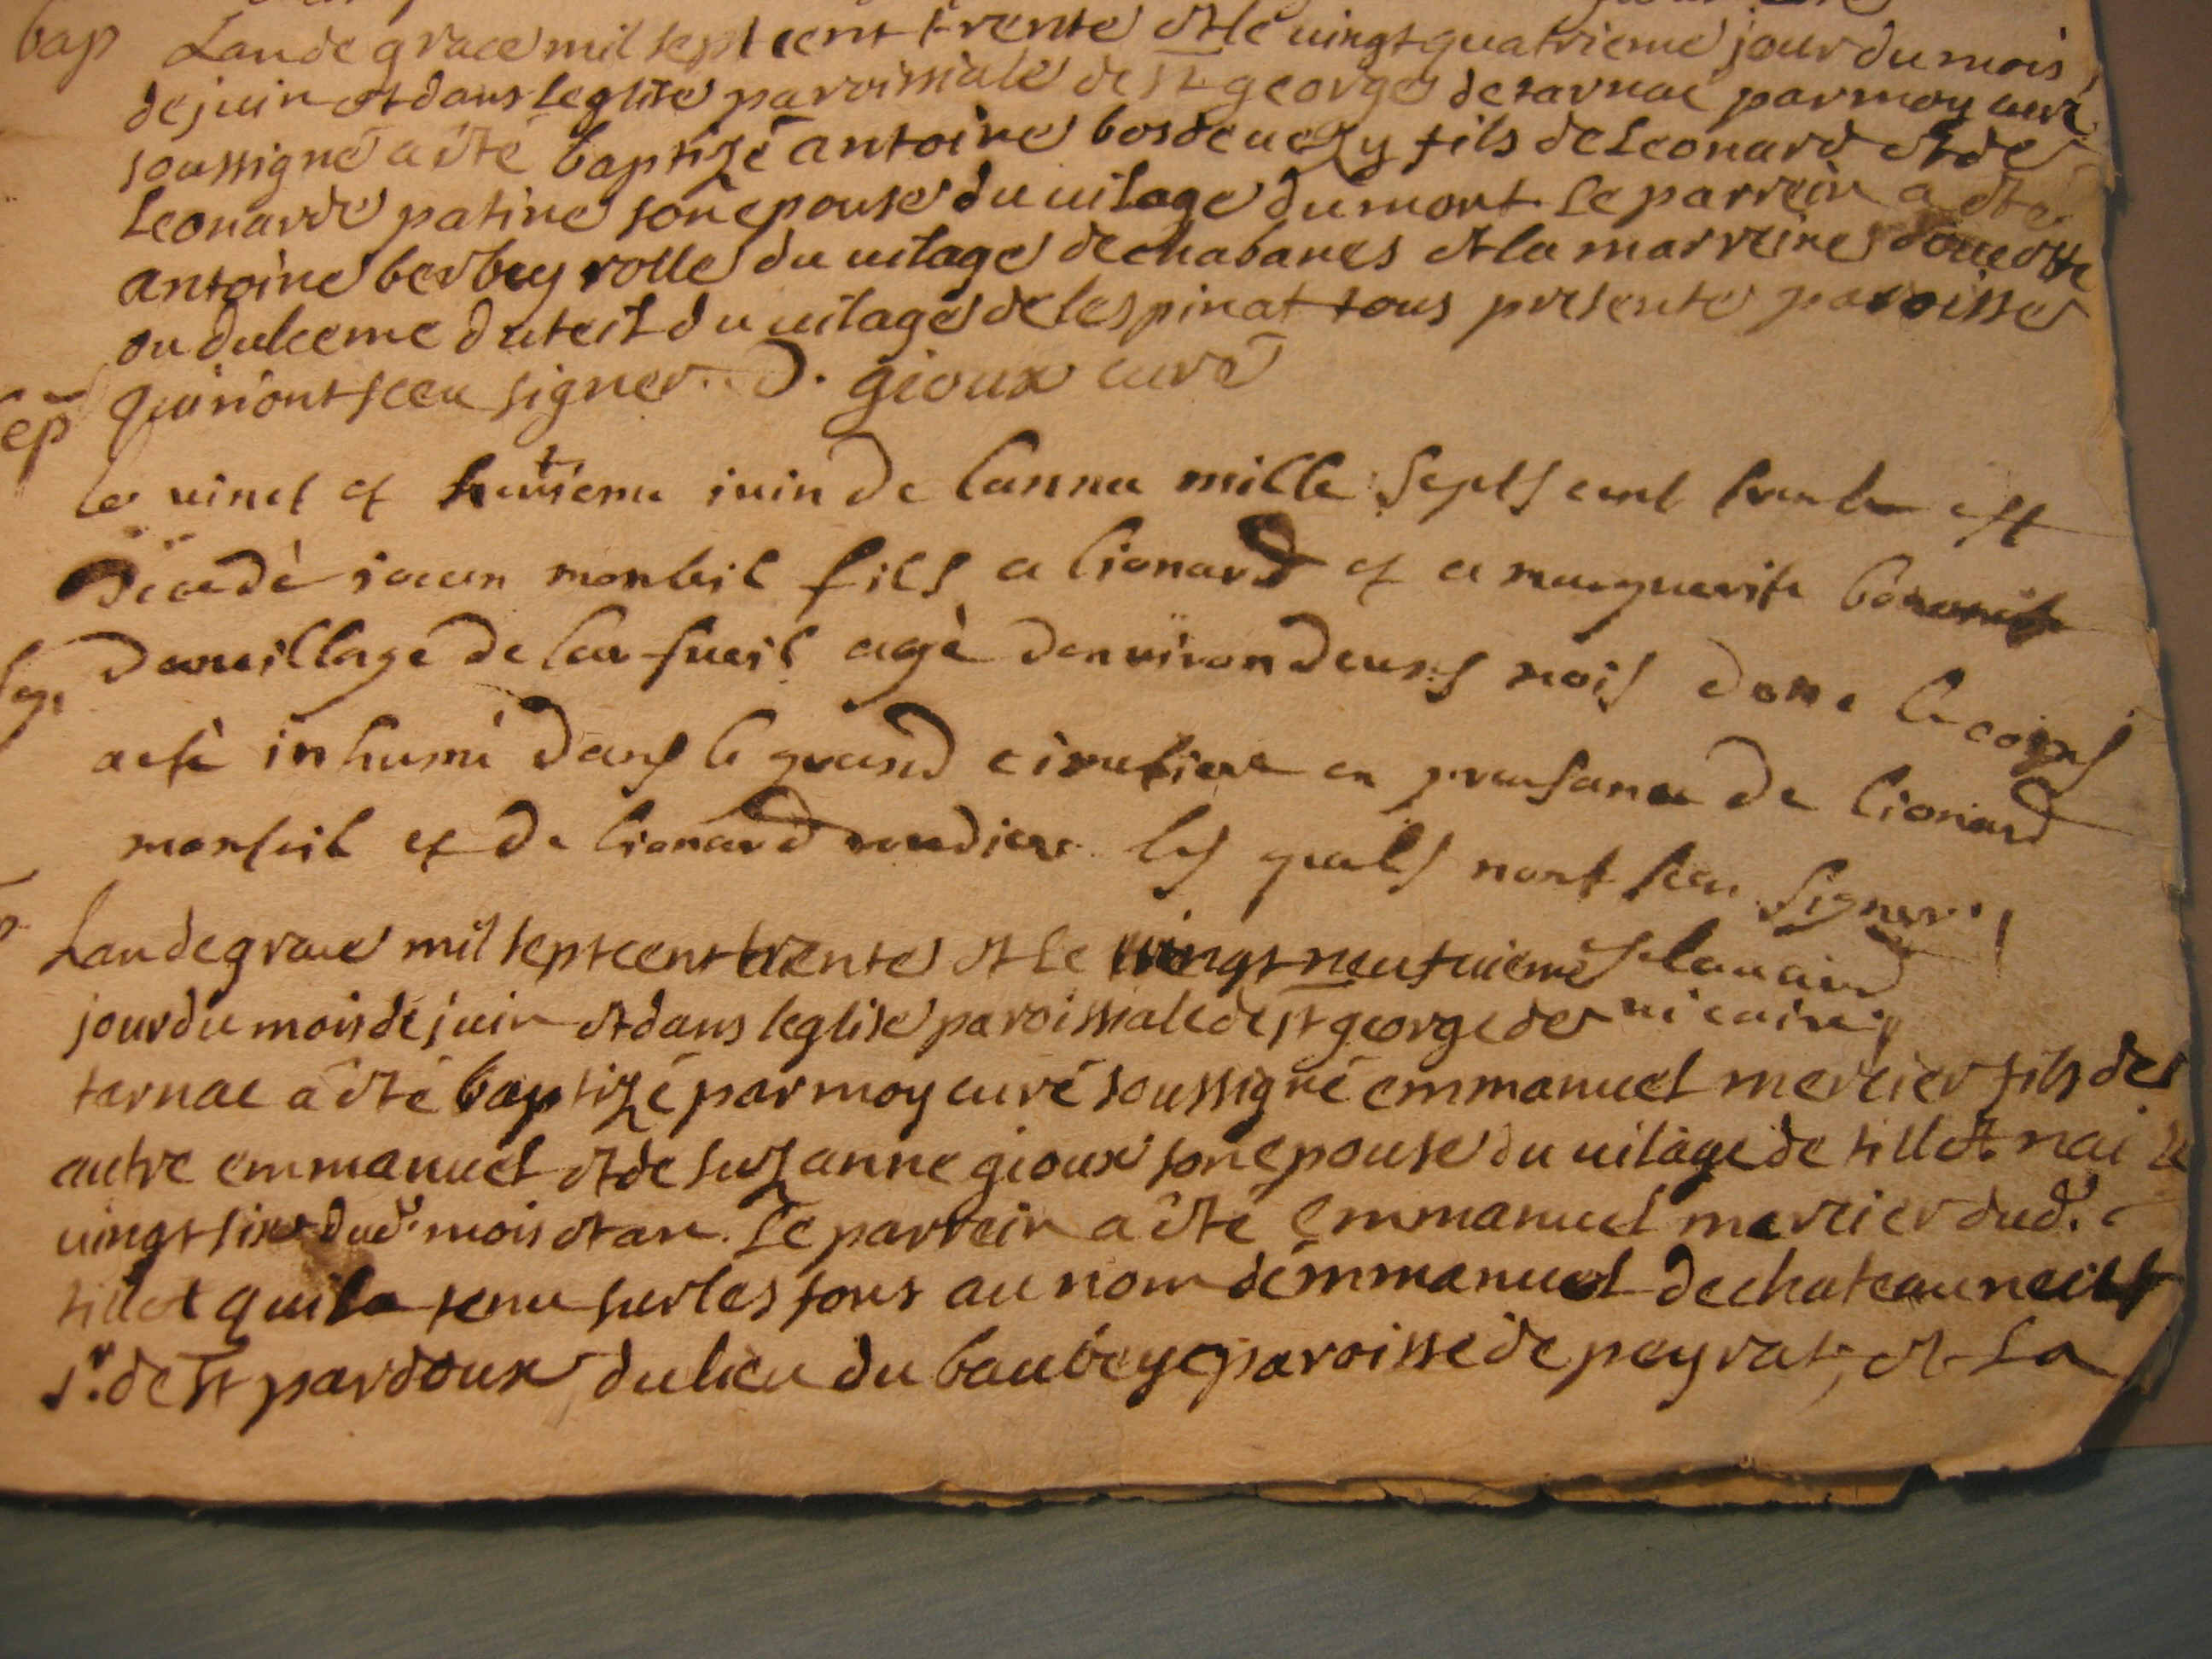 bap
Lan de grace mil sept cent trente et le vingt quatrieme jour du mois
de juin et dans leglise paroissiale de st george de tarnac par moy curé
soussigné a été baptizé antoine bosdeuezy fils de Leonard et de
Leonarde patine son epouse du uilage du mont. Le parrein a été
antoine berbeyrolle du uilage de chabanes et la marreine doucette
ou dulceme duteil du uilage de lespinat tous presente paroisse
qui n'ont sceu signer. D. gioux curé
le uinct et huitieme iuin de lannee mille septs cent trente est
decedè iean monteil fils a lionard et a marguerite
du uillage de lau fueil agè denuiron deuxs mois done le corps
a estè inhumè dans le grand cimetiere en preusance de lionard
monteil et de lionard les quels nont seu signer
Lan de grace mil sept cent trente et le vingt neufuieme
uicaire
jour du mois de juin et dans leglise paroissiale de st george de
tarnac a été baptizé par moy curé soussigné emmanuel mercier fils de
autre emmanuel et de suzanne gioux son epouse du uilage de tillet nai le
uingt six dud. mois et an. Le parrein a été Emmanuel mercier dud.
tillet qui la tenu sur les fons au nom d'emmanuel de chateauneuf
sr. de st pardoux du lieu du paroisse de peyrat, et La